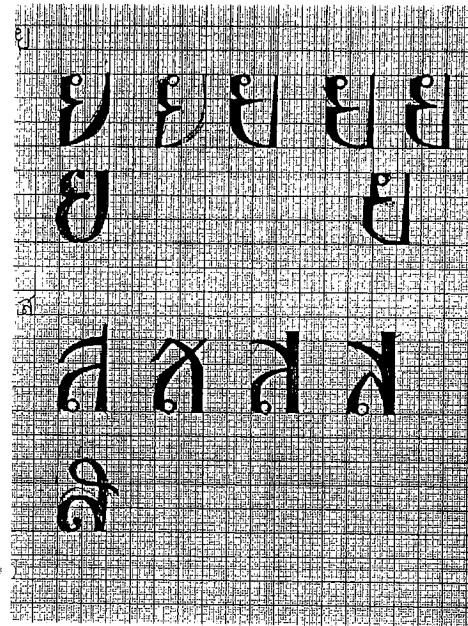 ย
ย ย ย ย ย
ย ย
ส
ส ส ส ส
ส